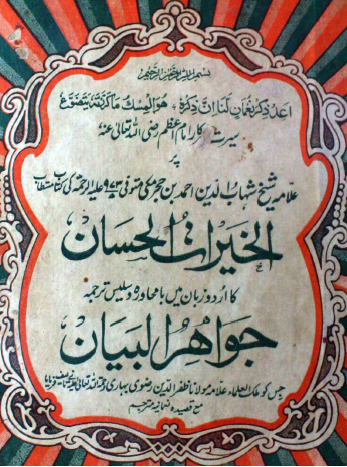 بسم اللہ الرحمٰن الرحیم
اَعِدْ ذِكْرَ نُعْمَانٍ لَنَا اِنَّ ذِكْرَهٗ ٭ هُوَ الْمِسْكُ مَا كَرَّرْتَهٗ يَتَضَوَّعٗ
سیرت کار امام اعظم رضی اللہ تعالیٰ عنہ
پر
علامہ شیخ شہاب الدین احمد بن حجر مکی متوفی ۹۷۳ علیہ الرحمۃ کی کتاب مستطاب
الخیرات الحسان
کا اردو زبان میں بامحاورہ و سلیس ترجمہ
جواہر البیان
جس کو ملک العلماء علامہ مولانا ظفر الدین رضوی بہاری رحمۃ اللہ تعالیٰ علیہ نے تصنیف فرمایا
مع قصیدہ نعمانیہ مترجم